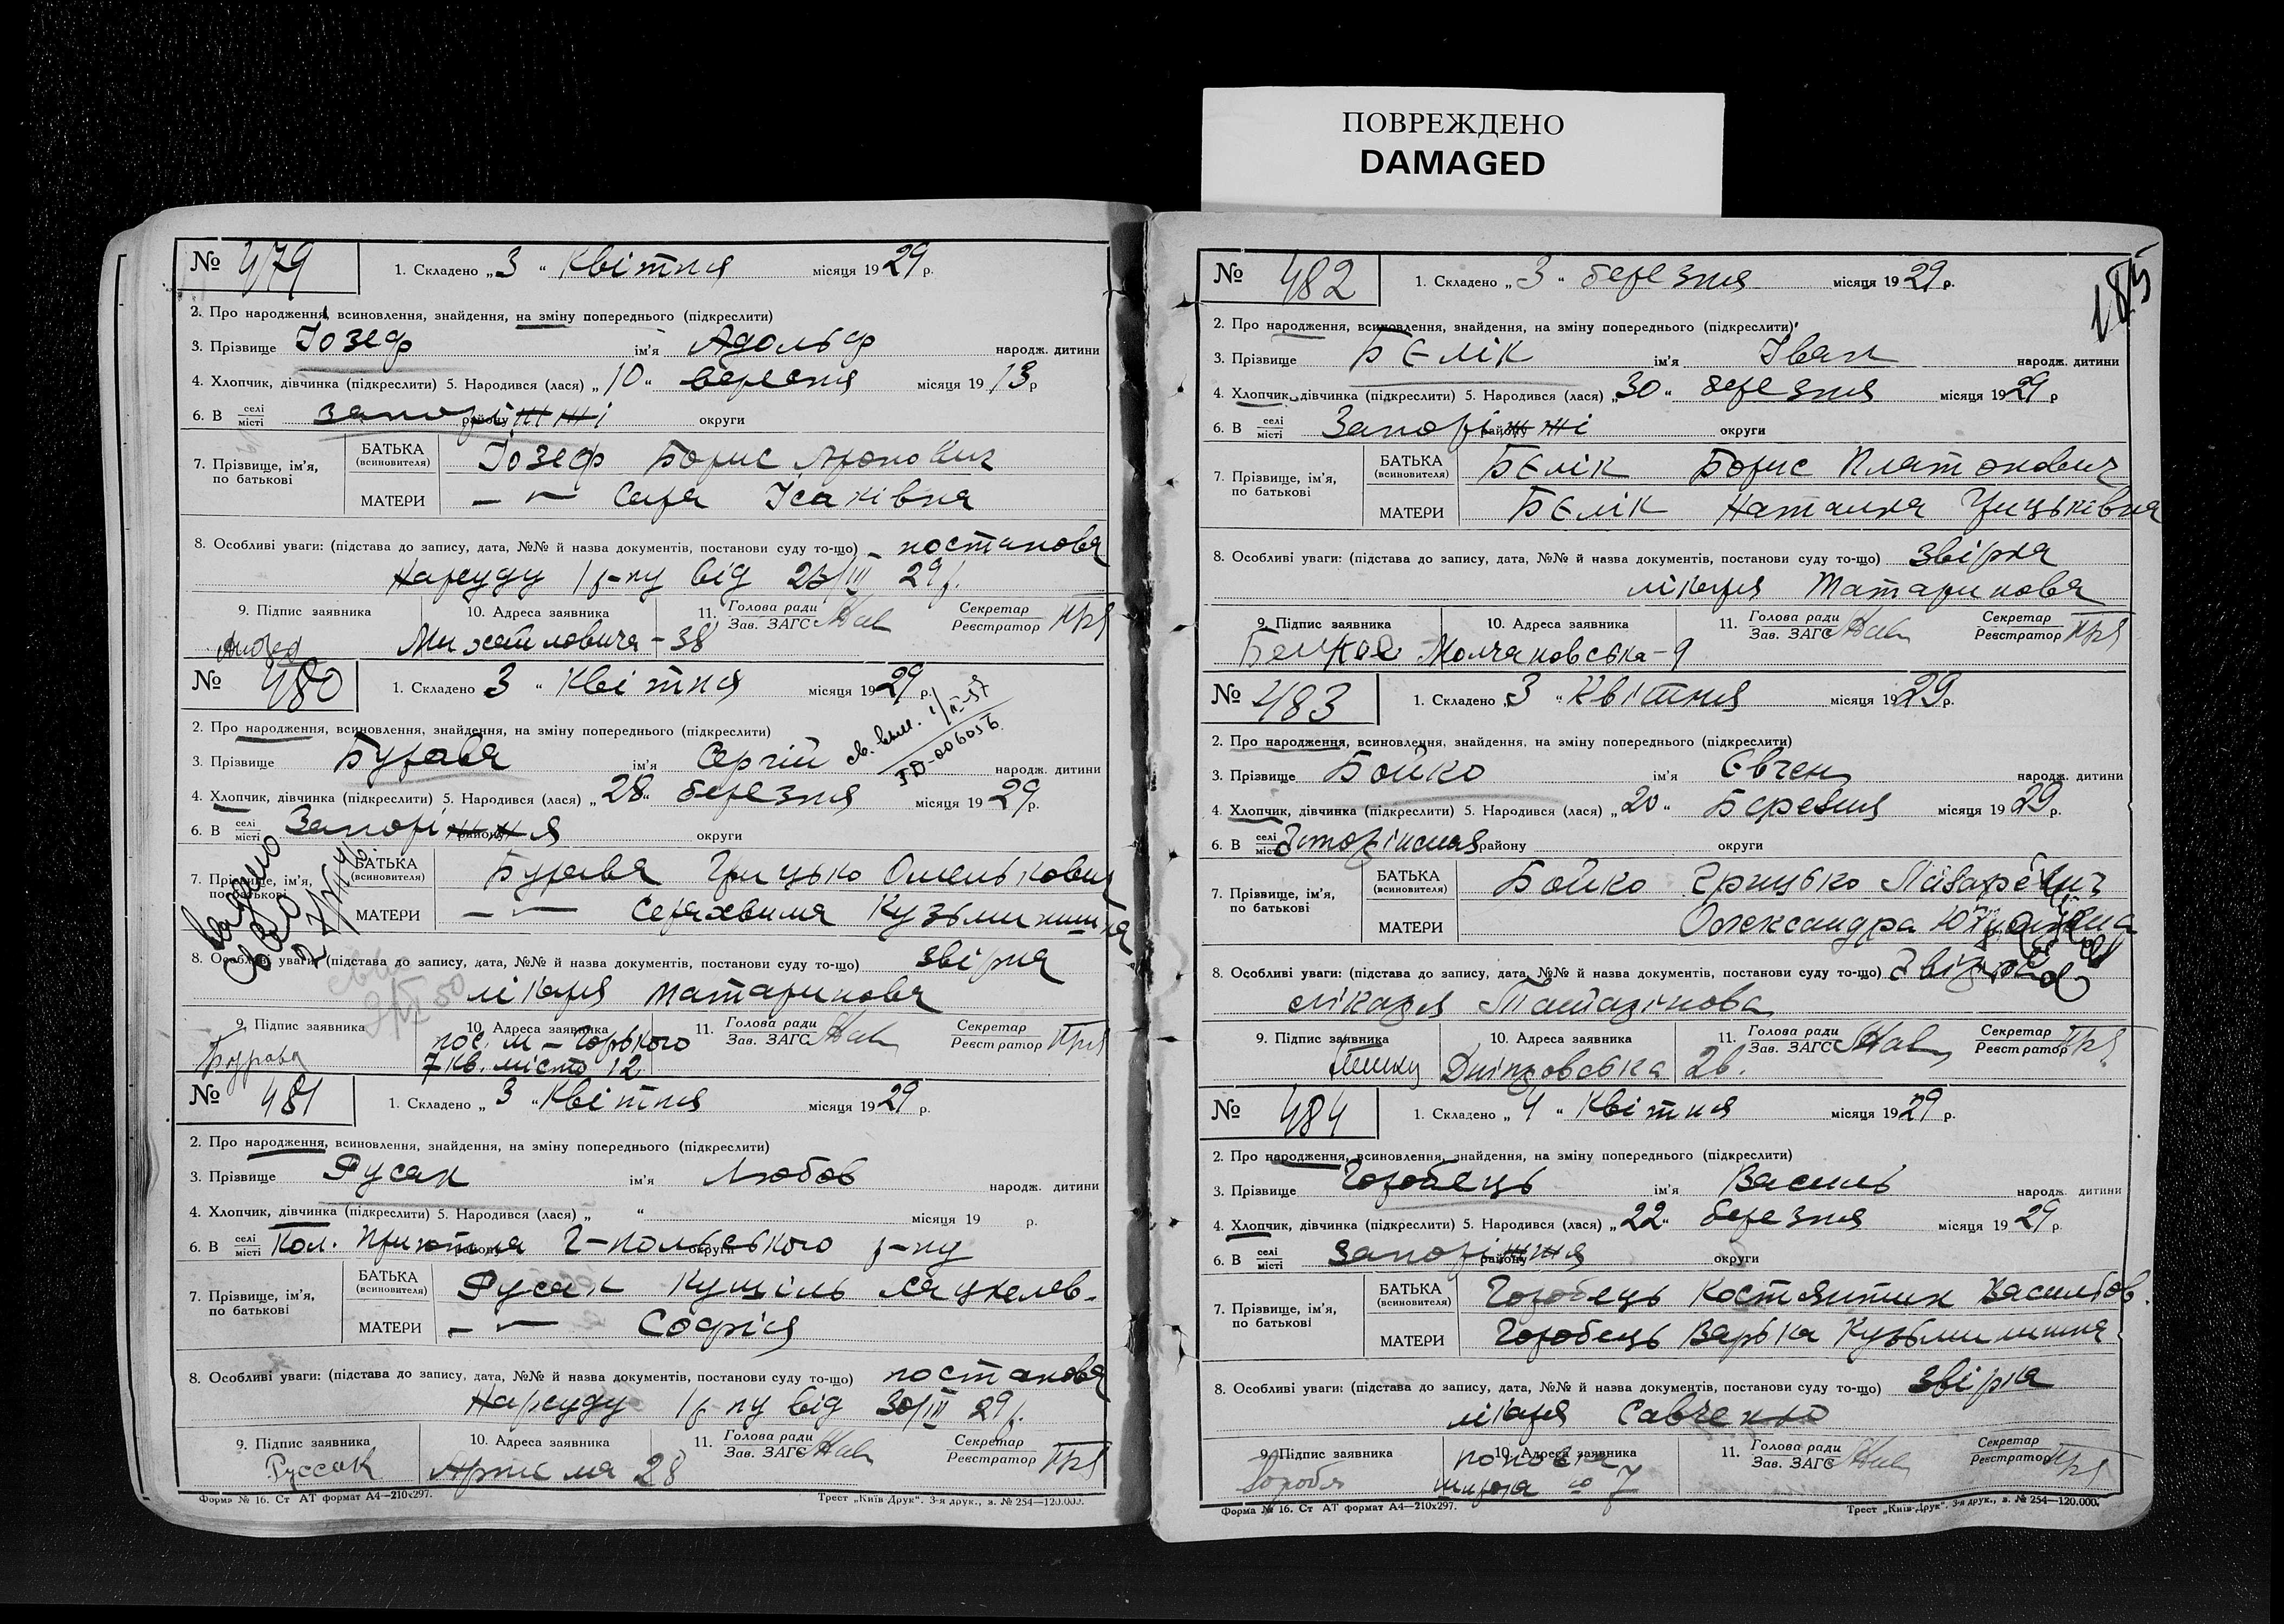 ПОВРЕЖДЕНО
DAMAGED
№ 479
1. Складено „ 3 “ Квітня місяця 1929 р.
2. Про народження, всиновлення, знайдення, на зміну попереднього (підкреслити)
3. Прізвище Іозеф ім'я Адольф народж. дитини
4. Хлопчик, дівчинка (підкреслити) 5. Народився (лася) „ 10 “ вересня місяця 1913 р
6. В селі місті Запоріжжі району округи
7. Прізвище, ім'я, по батькові
БАТЬКА (всиновителя) Іозеф Борис Аронович
МАТЕРИ — „ — Сара Ісаківна
8. Особливі уваги: (підстава до запису, дата, №№ й назва документів, постанови суду то-що) постанова
Нарсуду 1 р-ну від 23/III 29 р.
9. Підпис заявника 10. Адреса заявника 11. Голова ради Зав. ЗАГС Секретар Реєстратор
Михайловича - 38
№ 480
1. Складено 3 “ Квітня місяця 1929 р.
2. Про народження, всиновлення, знайдення, на зміну попереднього (підкреслити)
3. Прізвище Бурава ім'я Сергій народж. дитини
4. Хлопчик, дівчинка (підкреслити) 5. Народився (лася) „ 28 “ березня місяця 1929 р.
6. В селі місті Запоріжжя району округи
7. Прізвище, ім'я, по батькові
БАТЬКА (всиновителя) Бурава Грицько Омелькович
МАТЕРИ — „ — Серахвима Кузьминишна
8. Особливі уваги: (підстава до запису, дата, №№ й назва документів, постанови суду то-що) звірка
лікаря Татаринова
9. Підпис заявника 10. Адреса заявника 11. Голова ради Зав. ЗАГС Секретар Реєстратор
пос. м - Горького
7 кв. місто 12
№ 481
1. Складено „ 3 “ Квітня місяця 1929 р.
2. Про народження, всиновлення, знайдення, на зміну попереднього (підкреслити)
3. Прізвище Русак ім'я Любов народж. дитини
4. Хлопчик, дівчинка (підкреслити) 5. Народився (лася) „ “ місяця 19 р.
6. В селі місті Кол. району Г-польського округи р-ну
7. Прізвище, ім'я, по батькові
БАТЬКА (всиновителя) Русак
МАТЕРИ — „ — Софія
8. Особливі уваги: (підстава до запису, дата, №№ й назва документів, постанови суду то-що) постанова
Нарсуду 1 р-ну від 30/III 29 р.
9. Підпис заявника 10. Адреса заявника 11. Голова ради Зав. ЗАГС Секретар Реєстратор
Руссак Артема 28
Форма № 16. Ст АТ формат А4—210х297. Трест „Київ-Друк“. 3-я друк., з. № 254—120.000.
185
№ 482
1. Складено „ 3 “ березня місяця 1929 р.
2. Про народження, всиновлення, знайдення, на зміну попереднього (підкреслити)
3. Прізвище Бєлік ім'я Іван народж. дитини
4. Хлопчик, дівчинка (підкреслити) 5. Народився (лася) „ 30 “ березня місяця 1929 р
6. В селі місті Запоріжжі району округи
7. Прізвище, ім'я, по батькові
БАТЬКА (всиновителя) Бєлік Борис Платонович
МАТЕРИ Бєлік Наталка Грицьківна
8. Особливі уваги: (підстава до запису, дата, №№ й назва документів, постанови суду то-що) звірка
лікаря Татаринова
9. Підпис заявника 10. Адреса заявника 11. Голова ради Зав. ЗАГС Секретар Реєстратор
Молчановська - 9
№ 483
1. Складено „ 3 “ Квітня місяця 1929 р.
2. Про народження, всиновлення, знайдення, на зміну попереднього (підкреслити)
3. Прізвище Бойко ім'я Євген народж. дитини
4. Хлопчик, дівчинка (підкреслити) 5. Народився (лася) „ 20 “ Березня місяця 1929 р.
6. В селі місті району округи
7. Прізвище, ім'я, по батькові
БАТЬКА (всиновителя) Бойко Грицько Лазаревич
МАТЕРИ Олександра
8. Особливі уваги: (підстава до запису, дата, №№ й назва документів, постанови суду то-що) Звірка
лікаря Татарінова
9. Підпис заявника 10. Адреса заявника 11. Голова ради Зав. ЗАГС Секретар Реєстратор
Дніпровська 26.
№ 484
1. Складено „ 4 “ Квітня місяця 1929 р.
2. Про народження, всиновлення, знайдення, на зміну попереднього (підкреслити)
3. Прізвище Горобець ім'я Василь народж. дитини
4. Хлопчик, дівчинка (підкреслити) 5. Народився (лася) „ 22 “ березня місяця 1929 р.
6. В селі місті Запоріжжя району округи
7. Прізвище, ім'я, по батькові
БАТЬКА (всиновителя) Горобець Костянтин Васильов.
МАТЕРИ Горобець Варька Кузьминишна
8. Особливі уваги: (підстава до запису, дата, №№ й назва документів, постанови суду то-що) звірка
лікаря Савченко
9. Підпис заявника 10. Адреса заявника 11. Голова ради Зав. ЗАГС Секретар Реєстратор
Форма № 16. Ст АТ формат А4—210х297. Трест „Київ-Друк“. 3-я друк., з. № 254—120.000.